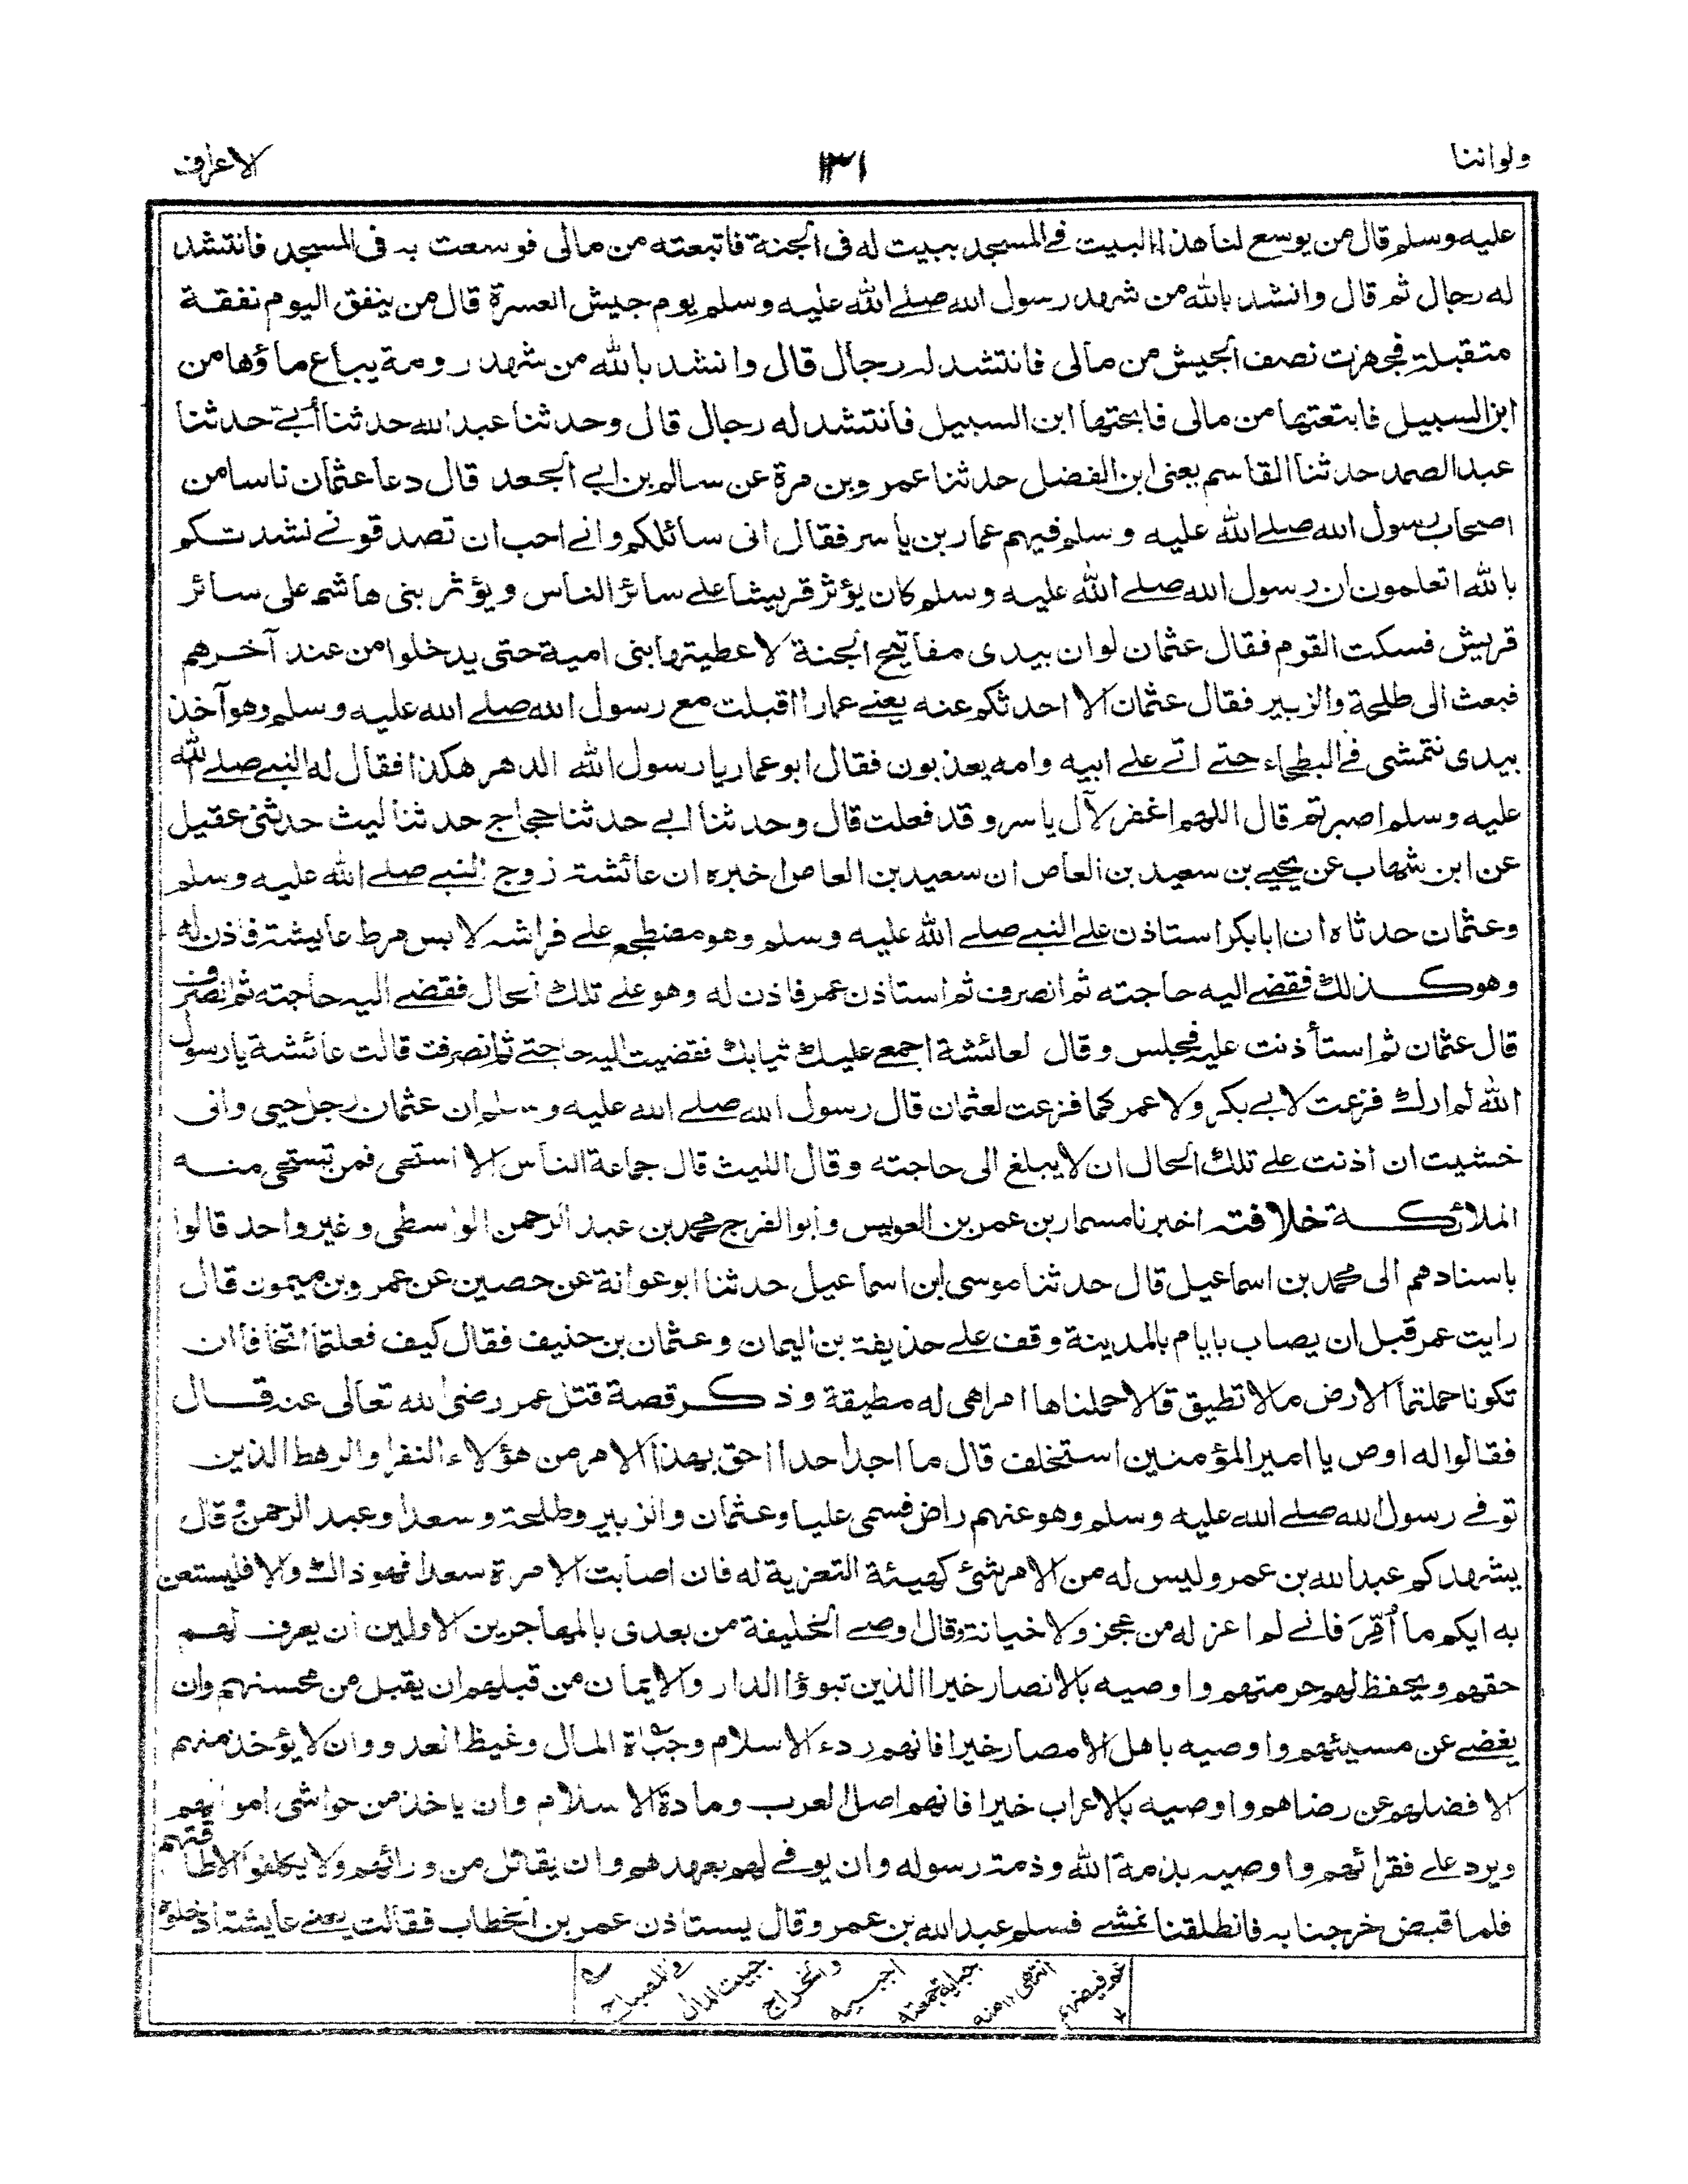 ولواننا ١٣١ لاعارف
عليه وسلم قال من يوسع لنا هذا البيت في المسجد ببيت له في الجنة فاتبعته من مالى فوسعت به فى المسجد فانتشد
له رجال ثم قال وانشد بالله من شهد رسول الله صلے الله عليه وسلم يوم جيش العسرة قال من ينفق اليوم نفقة
متقبلة فجهزت نصف الجيش من مالى فانتشد له رجال قال وانشد بالله من شهد رومة يباع ماؤها من
ابن السبيل فابتعتها من مالى فابحتها ابن السبيل فانتشد له رجال قال وحدثنا عبد الله حدثنا أبي حدثنا
عبد الصمد حدثنا القاسم يعنى ابن الفضل حدثنا عمرو بن مرة عن سالم بن ابى الجعد قال دعا عثمان ناسا من
اصحاب رسول الله صلے الله عليه وسلم فيهم عمار بن ياسر فقال انى سائلكم وانے احب ان تصدقونے نشدتكم
بالله اتعلمون ان رسول الله صلے الله عليه وسلم كان يؤثر قريشا علے سائر الناس ويؤثر بنى هاشم على سائر
قريش فسكت القوم فقال عثمان لوان بيدى مفاتيح الجنة لاعطيتها بنى امية حتى يدخلوا من عند آخرهم
فبعث الى طلحة والزبير فقال عثمان الا احدثكم عنه يعنے عمارا اقبلت مع رسول الله صلے الله عليه وسلم وهو آخذ
بيدى نتمشى فے البطحاء حتے اتے علے ابيه وامه يعذبون فقال ابو عمار يا رسول الله الدهر هكذا فقال له النبے صلے الله
عليه وسلم اصبر ثم قال اللهم اغفر لآل ياسر وقد فعلت قال وحدثنا ابے حدثنا حجاج حدثنا ليث حدثنى عقيل
عن ابن شهاب عن يحيے بن سعيد بن العاص ان سعيد بن العاص اخبره ان عائشة زوج النبے صلے الله عليه وسلم
وعثمان حدثاه ان ابا بكر استاذن علے النبے صلے الله عليه وسلم وهو مضطجع علے فراشه لابس مرط عايشة فاذن له
وهو كذلك فقضے اليه حاجته ثم انصرف ثم استاذن عمر فاذن له وهو علے تلك الحال فقضے اليه حاجته ثم انصرف
قال عثمان ثم استأذنت عليه فجلس وقال لعائشة اجمعے عليك ثيابك فقضيت اليه حاجتے ثم انصرفت قالت عائشة يا رسول
الله لم ارك فزعت لابے بكر ولا عمر كما فزعت لعثمان قال رسول الله صلے الله عليه وسلم ان عثمان رجل حيى وانى
خشيت ان اذنت علے تلك الحال ان لا يبلغ الى حاجته وقال الليث قال جماعة الناس الا استحى فمن تستحى منه
الملائكة خلافته اخبرنا مسمار بن عمر بن العويس وابو الفرج محمد بن عبد الرحمن الواسطى وغير واحد قالوا
باسنادهم الى محمد بن اسماعيل قال حدثنا موسى ابن اسماعيل حدثنا ابو عوانة عن حصين عن عمرو بن ميمون قال
رايت عمر قبل ان يصاب بايام بالمدينة وقف علے حذيفة بن اليمان وعثمان بن حنيف فقال كيف فعلتما اتخافا ان
تكونا حملتما الارض ما لا تطيق قالا حملناها امرا هى له مطيقة وذكر قصة قتل عمر رضى الله تعالى عنه قال
فقالوا له اوص يا امير المؤمنين استخلف قال ما اجد احدا احق بهذا الامر من هؤلاء النفر او الرهط الذين
توفے رسول الله صلے الله عليه وسلم وهو عنهم راض فسمى عليا وعثمان والزبير وطلحة وسعدا وعبد الرحمن قال
يشهدكم عبد الله بن عمر وليس له من الامر شئ كهيئة التعزية له فان اصابت الامرة سعدا فهو ذاك والا فليستعن
به ايكم ما أُمِّرَ فانے لم اعزله من عجز ولا خيانة وقال اوصے الخليفة من بعدى بالمهاجرين الاولين ان يعرف لهم
حقهم ويحفظ لهم حرمتهم واوصيه بالانصار خيرا الذين تبوؤا الدار والايمان من قبلهم ان يقبل من محسنهم وان
يغضے عن مسيئهم واوصيه باهل الامصار خيرا فانهم ردء الاسلام وجباة المال وغيظ العدو وان لا يؤخذ منهم
الا فضلهم عن رضاهم واوصيه بالاعراب خيرا فانهم اصل العرب ومادة الاسلام وان ياخذ من حواشى اموالهم
ويرد علے فقرائهم واوصيه بذمة الله وذمة رسوله وان يوفے لهم بعهدهم وان يقاتل من ورائهم ولا يكلفوا الا طاقتهم
فلما قبض خرجنا به فانطلقنا نمشے فسلم عبد الله بن عمر وقال يستاذن عمر بن الخطاب فقالت يعنے عايشة ادخلوه
فے المصباح
جبيت المال
والخراج
اجبيه
جباية جمعته
انتهى ١٢ منه